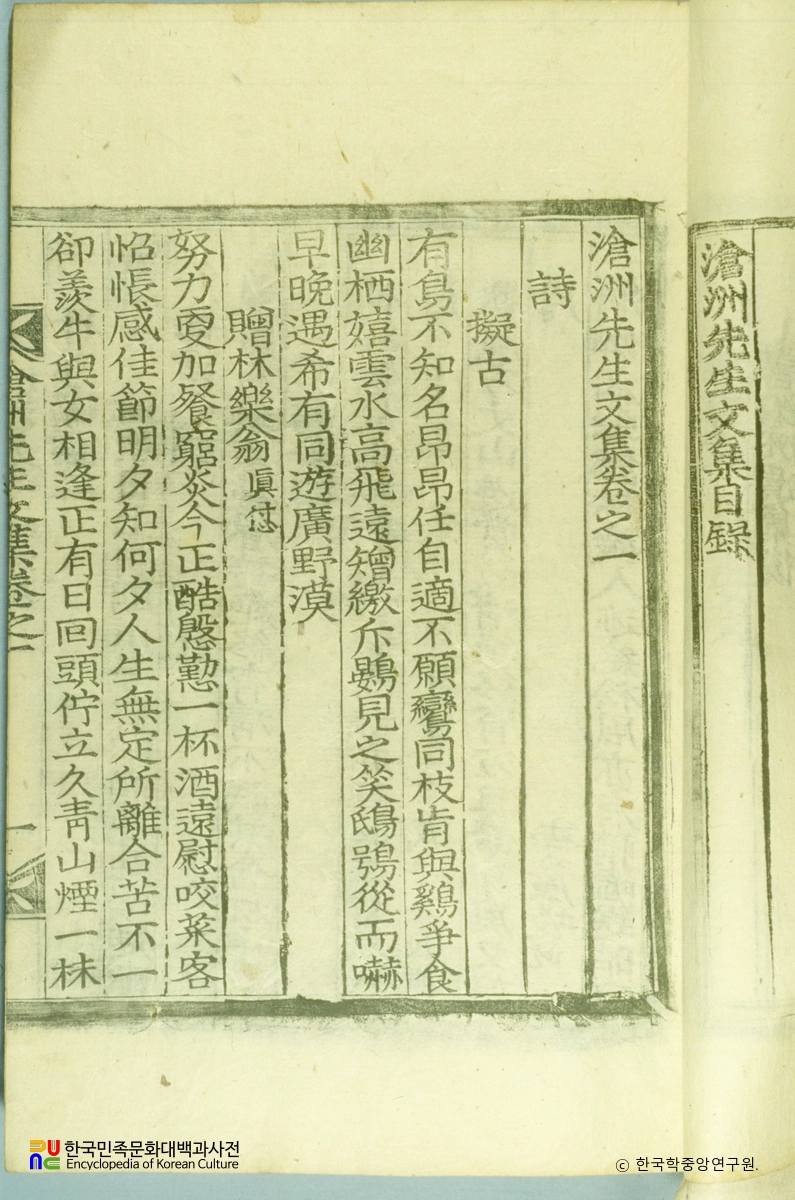 滄洲先生文集目錄
滄洲先生文集卷之一
詩
擬古
有鳥不知名昂昂任自適不願鸞同枝肯與鷄爭食
幽栖嬉雲水高飛遠矰繳斥鷃見之笑鴟鴞從而嚇
早晚遇希有同遊廣野漠
贈林樂翁眞怤
努力更加餐窮炎今正酷慇懃一杯酒遠慰咬菜客
怊悵感佳節明夕知何夕人生無定所離合苦不一
卻羨牛與女相逢正有日回頭佇立久靑山煙一抹
滄洲先生文集卷之一 一
한국민족문화대백과사전
Encyclopedia of Korean Culture
© 한국학중앙연구원.